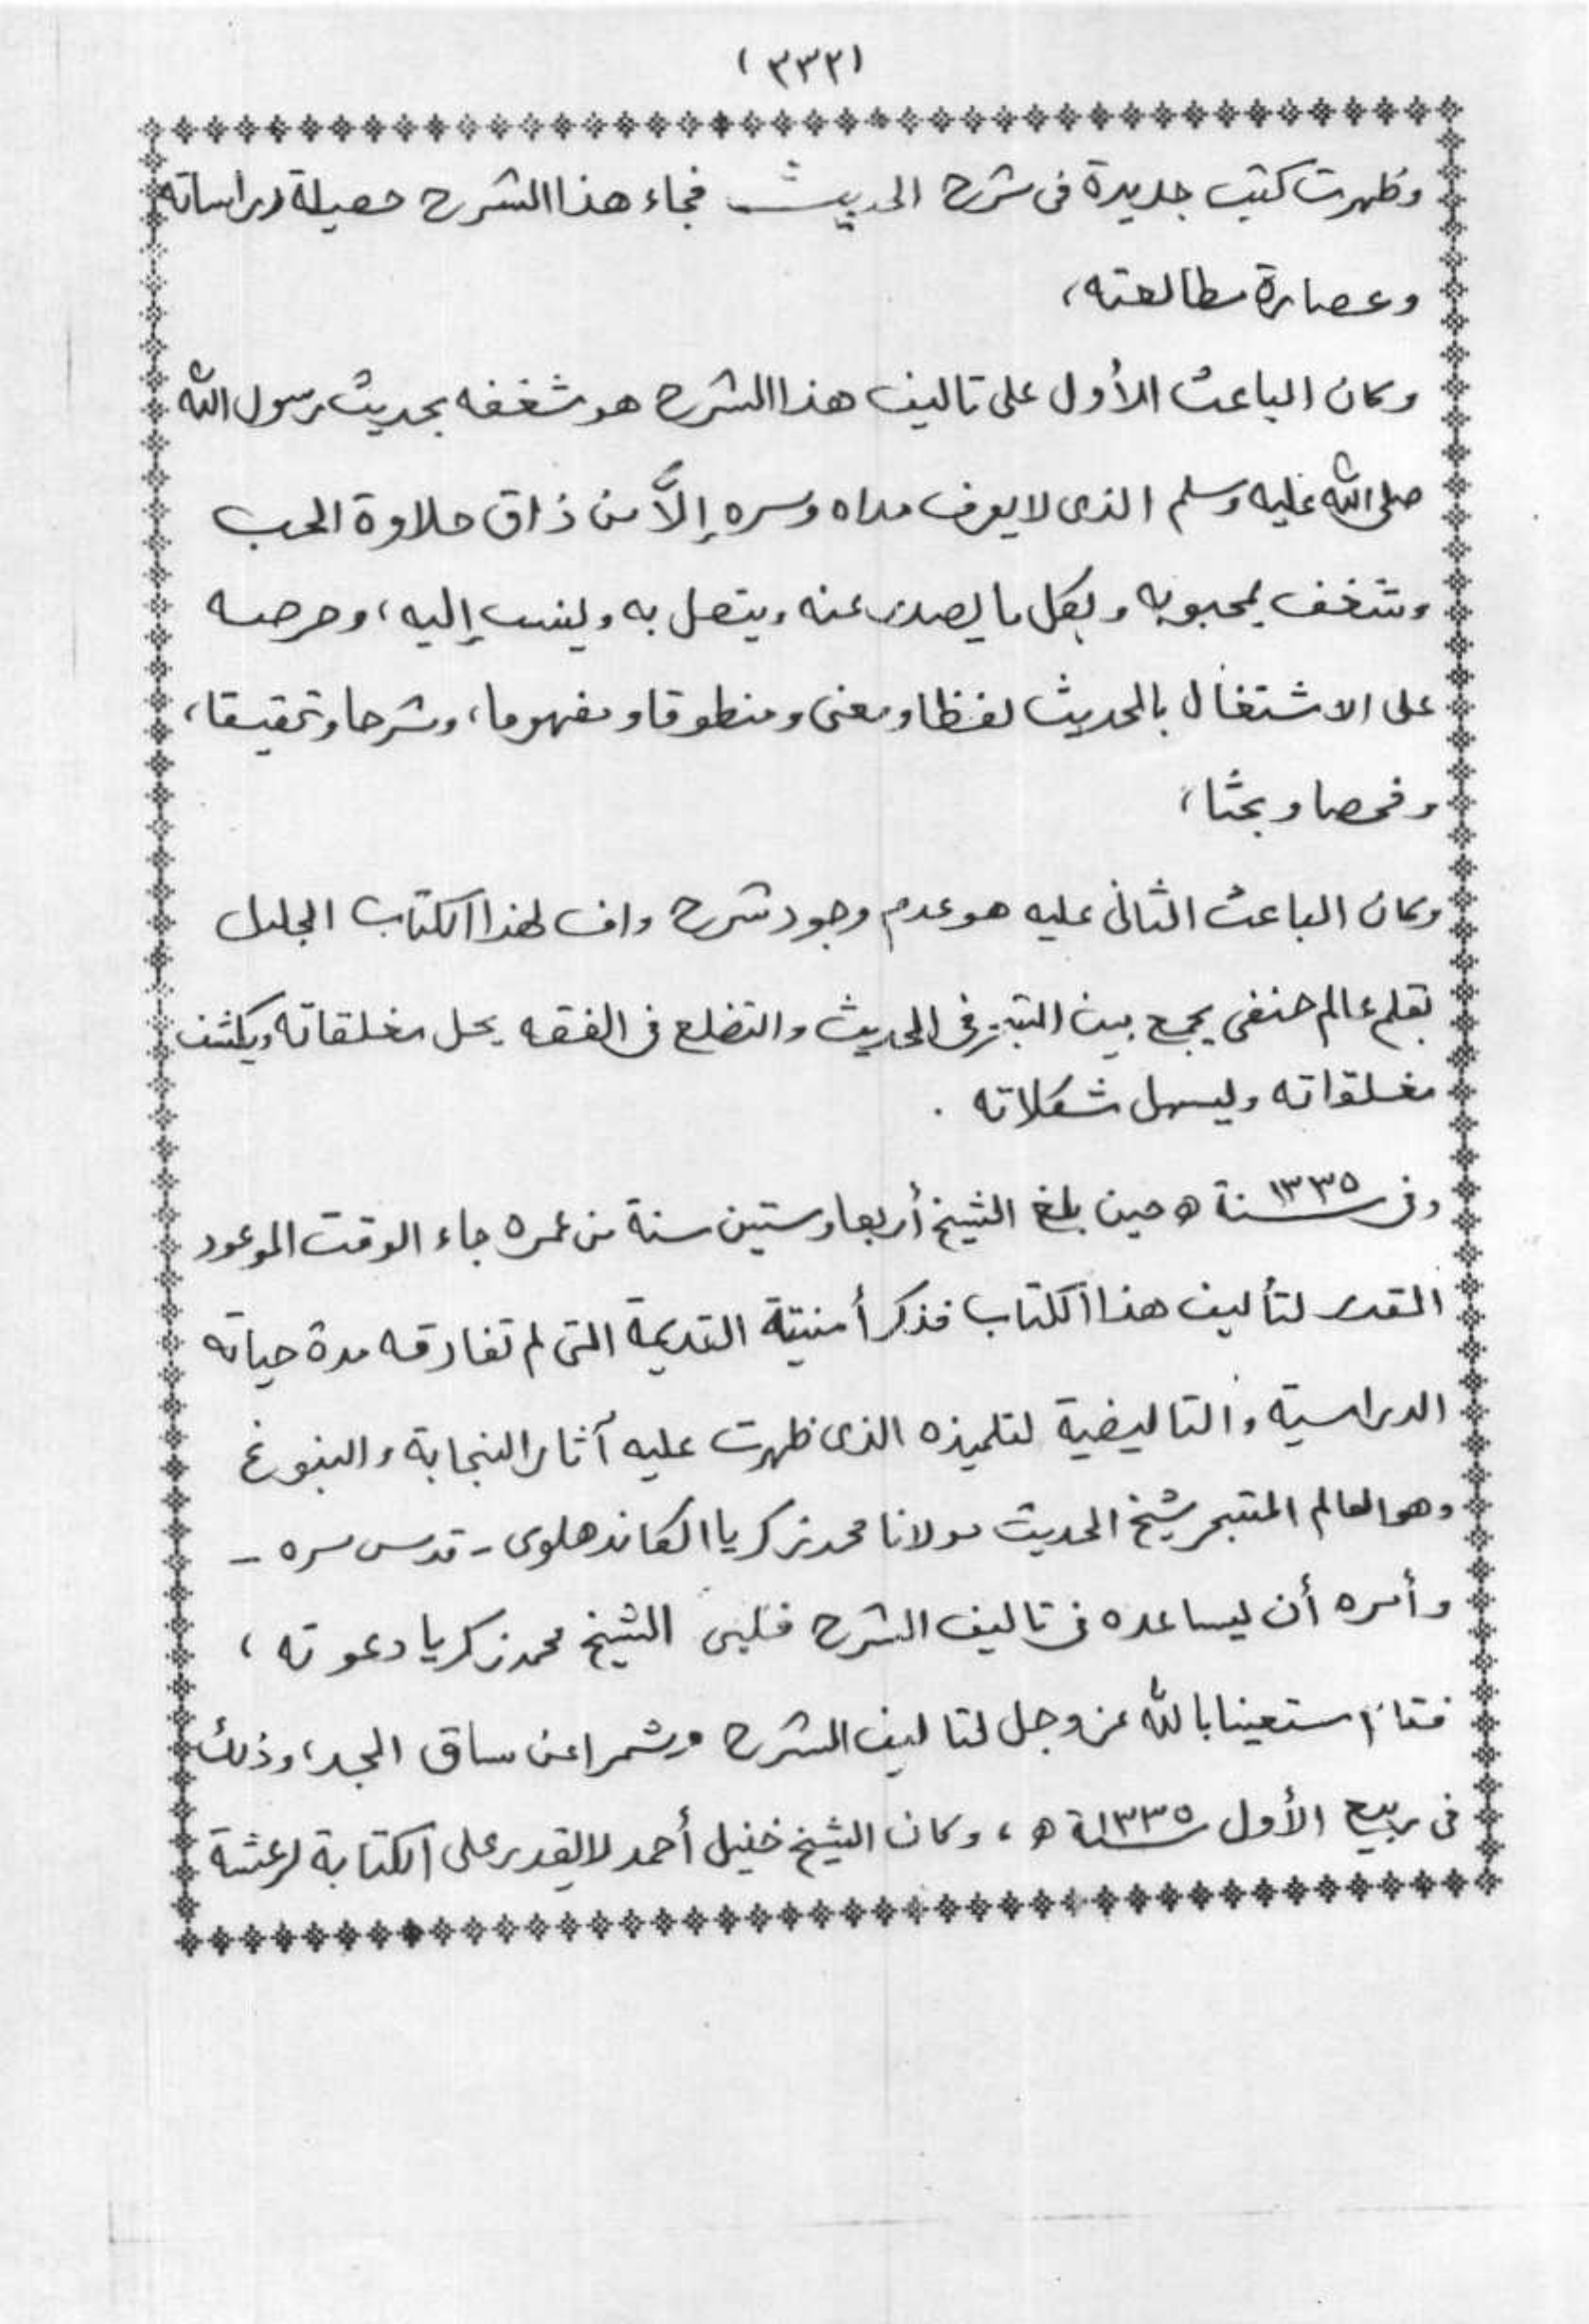 (٣٣٢)
وظهرت كتب جديدة فى شرح الحديث فجاء هذا الشرح حصيلة دراساته
وعصارة مطالعته،
وكان الباعث الأول على تاليف هذا الشرح هو شغفه بحديث رسول الله
صلى الله عليه وسلم الذى لا يعرف مداه وسره إلاَّ من ذاق حلاوة الحب
وشغف بمحبوبه وبكل ما يصدر عنه ويتصل به وينسب إليه، وحرصه
على الاشتغال بالحديث لفظا ومعنى ومنطوقا ومفهوما، وشرحا وتحقيقا،
وفحصا وبحثا،
وكان الباعث الثانى عليه هو عدم وجود شرح واف لهذا الكتاب الجليل
بقلم عالم حنفى يجمع بين التبحر فى الحديث والتضلع فى الفقه يحل مغلقاته ويكشف
مغلقاته ويسهل شكلاته .
وفى سنة ١٣٣٥ ه حين بلغ الشيخ أربعا وستين سنة من عمره جاء الوقت الموعود
المقدر لتأليف هذا الكتاب فذكر أمنيته القديمة التى لم تفارقه مدة حياته
الدراسية والتاليفية لتلميذه الذى ظهرت عليه آثار النجابة والنبوغ
وهو العالم المتبحر شيخ الحديث مولانا محمد زكريا الكاندهلوى - قدس سره -
وأمره أن يساعده فى تاليف الشرح فلبى الشيخ محمد زكريا دعوته ،
فقاما ستعينا بالله عز وجل لتاليف الشرح وشمرا عن ساق الجد، وذلك
فى ربيع الأول سنة ١٣٣٥ ه ، وكان الشيخ خليل أحمد لا يقدر على الكتابة لرعشة